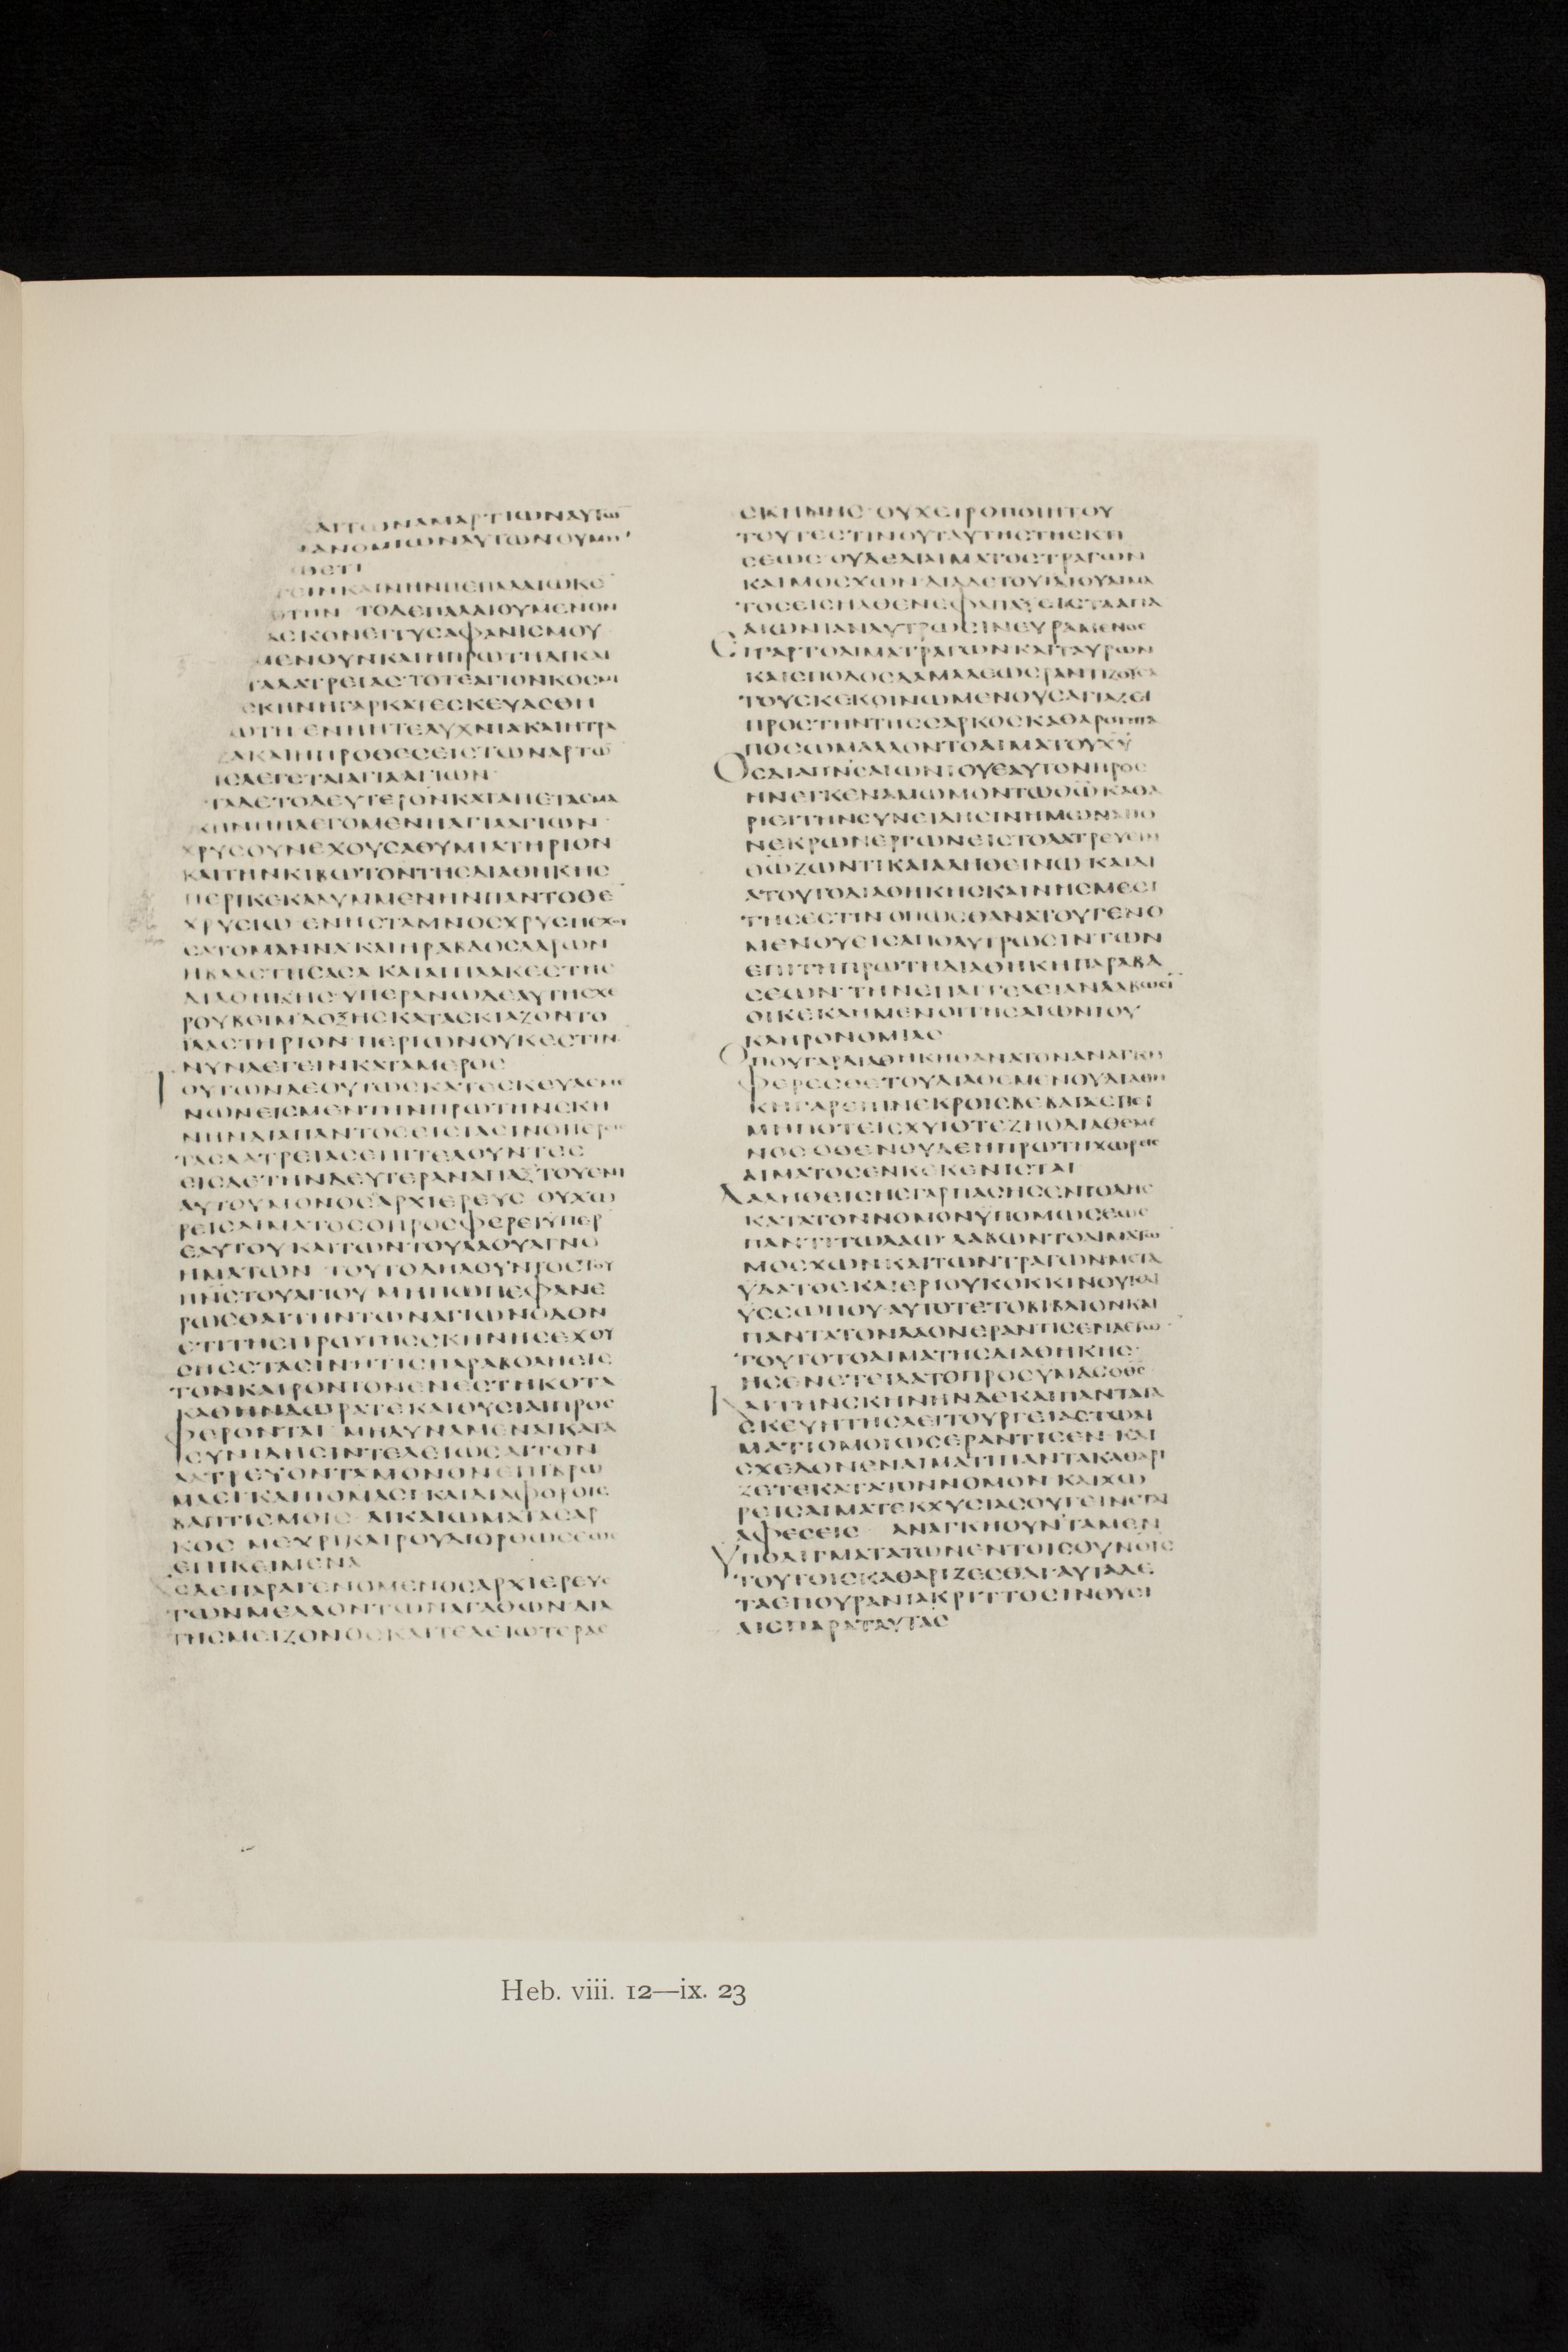 ΑΙΤΩΝΑΜΑΡΤΙΩΝΑΥΤΩ̅
ΑΝΟΜΙΩΝΑΥΤΩΝΟΥΜΗ
ΩΕΤΙ
ΓΕΙΝΚΑΙΝΗΝΠΕΠΑΛΑΙΩΚΕ
ΩΤΗΝ ΤΟΔΕΠΑΛΑΙΟΥΜΕΝΟΝ
ΑϹΚΟΝΕΓΓΥϹΑΦΑΝΙϹΜΟΥ
ΜΕΝΟΥΝΚΑΙΗΠΡΩΤΗΔΙΚΑΙ
ΤΑΛΑΤΡΕΙΑϹΤΟΤΕΑΓΙΟΝΚΟϹΜΙ
ϹΚΗΝΗΓΑΡΚΑΤΕϹΚΕΥΑϹΘΗ
ΩΤΗ ΕΝΗΗΤΕΛΥΧΝΙΑΚΑΙΗΤΡΑ
ΖΑΚΑΙΗΠΡΟΘΕϹΕΙϹΤΩΝΑΡΤΩ̅
ΙϹΛΕΓΕΤΑΙΑΓΙΑΑΓΙΩΝ
ΤΑΔΕΤΟΔΕΥΤΕΡΟΝΚΑΤΑΠΕΤΑϹΜΑ
ΚΗΝΗΗΛΕΓΟΜΕΝΗΑΓΙΑΑΓΙΩΝ
ΧΡΥϹΟΥΝΕΧΟΥϹΑΘΥΜΙΑΤΗΡΙΟΝ
ΚΑΙΤΗΝΚΙΒΩΤΟΝΤΗϹΔΙΑΘΗΚΗϹ
ΠΕΡΙΚΕΚΑΛΥΜΜΕΝΗΝΠΑΝΤΟΘΕ̅
ΧΡΥϹΙΩ ΕΝΗϹΤΑΜΝΟϹΧΡΥϹΗΕΧΟΥ
ϹΑΤΟΜΑΝΝΑΚΑΙΗΡΑΒΔΟϹΑΑΡΩΝ
ΗΒΛΑϹΤΗϹΑϹΑ ΚΑΙΑΙΠΛΑΚΕϹΤΗϹ
ΔΙΑΘΗΚΗϹ ΥΠΕΡΑΝΩΔΕΑΥΤΗϹΧΕ
ΡΟΥΒΕΙΜΔΟΞΗϹΚΑΤΑϹΚΙΑΖΟΝΤΟ
ΙΛΑϹΤΗΡΙΟΝ ΠΕΡΙΩΝΟΥΚΕϹΤΙΝ
ΝΥΝΛΕΓΕΙΝΚΑΤΑΜΕΡΟϹ
ΤΟΥΤΩΝΔΕΟΥΤΩϹΚΑΤΕϹΚΕΥΑϹΜΕ
ΝΩΝΕΙϹΜΕΝΤΗΝΠΡΩΤΗΝϹΚΗ
ΝΗΝΔΙΑΠΑΝΤΟϹΕΙϹΙΑϹΙΝΟΙΕΡΕΙϹ
ΤΑϹΛΑΤΡΕΙΑϹΕΠΙΤΕΛΟΥΝΤΕϹ
ΕΙϹΔΕΤΗΝΔΕΥΤΕΡΑΝΑΠΑΞΤΟΥΕΝΙ
ΑΥΤΟΥΜΟΝΟϹΑΡΧΙΕΡΕΥϹ ΟΥΧΩ
ΡΕΙϹΑΙΜΑΤΟϹΟΠΡΟϹΦΕΡΕΙΥΠΕΡ
ΕΑΥΤΟΥΚΑΙΤΩΝΤΟΥΛΑΟΥΑΓΝΟ
ΗΜΑΤΩΝ ΤΟΥΤΟΔΗΛΟΥΝΤΟϹΤΟΥ
Π̅Ν̅ϹΤΟΥΑΓΙΟΥΜΗΠΩΠΕΦΑΝΕ
ΡΩϹΘΑΙΤΗΝΤΩΝΑΓΙΩΝΟΔΟΝ
ΕΤΙΤΗϹΠΡΩΤΗϹϹΚΗΝΗϹΕΧΟΥ
ϹΗϹϹΤΑϹΙΝΗΤΙϹΠΑΡΑΒΟΛΗΕΙϹ
ΤΟΝΚΑΙΡΟΝΤΟΝΕΝΕϹΤΗΚΟΤΑ
ΚΑΘΗΝΔΩΡΑΤΕΚΑΙΘΥϹΙΑΙΠΡΟϹ
ΦΕΡΟΝΤΑΙ ΜΗΔΥΝΑΜΕΝΑΙΚΑΤΑ
ϹΥΝΙΔΗϹΙΝΤΕΛΕΙΩϹΑΙΤΟΝ
ΛΑΤΡΕΥΟΝΤΑΜΟΝΟΝΕΠΙΒΡΩ
ΜΑϹΙΚΑΙΠΟΜΑϹΙΚΑΙΔΙΑΦΟΡΟΙϹ
ΒΑΠΤΙϹΜΟΙϹ ΔΙΚΑΙΩΜΑΤΑϹΑΡ
ΚΟϹ ΜΕΧΡΙΚΑΙΡΟΥΔΙΟΡΘΩϹΕΩϹ
ΕΠΙΚΕΙΜΕΝΑ
ΧϹΔΕΠΑΡΑΓΕΝΟΜΕΝΟϹΑΡΧΙΕΡΕΥϹ
ΤΩΝΜΕΛΛΟΝΤΩΝΑΓΑΘΩΝ ΔΙΑ
ΤΗϹΜΕΙΖΟΝΟϹΚΑΙΤΕΛΕΙΩΤΕΡΑϹ
ϹΚΗΝΗϹ ΟΥΧΕΙΡΟΠΟΙΗΤΟΥ
ΤΟΥΤΕϹΤΙΝΟΥΤΑΥΤΗϹΤΗϹΚΤΙ
ϹΕΩϹ ΟΥΔΕΔΙΑΙΜΑΤΟϹΤΡΑΓΩΝ
ΚΑΙΜΟϹΧΩΝ ΔΙΑΔΕΤΟΥΙΔΙΟΥΑΙΜΑ
ΤΟϹΕΙϹΗΛΘΕΝΕΦΑΠΑΞΕΙϹΤΑΑΓΙΑ
ΑΙΩΝΙΑΝΛΥΤΡΩϹΙΝΕΥΡΑΜΕΝΟϹ
ΕΙΓΑΡΤΟΑΙΜΑΤΡΑΓΩΝΚΑΙΤΑΥΡΩΝ
ΚΑΙϹΠΟΔΟϹΔΑΜΑΛΕΩϹΡΑΝΤΙΖΟΥϹΑ
ΤΟΥϹΚΕΚΟΙΝΩΜΕΝΟΥϹΑΓΙΑΖΕΙ
ΠΡΟϹΤΗΝΤΗϹϹΑΡΚΟϹΚΑΘΑΡΟΤΗΤΑ
ΠΟϹΩΜΑΛΛΟΝΤΟΑΙΜΑΤΟΥΧ̅Υ̅
ΟϹΔΙΑΠ̅Ν̅ϹΑΙΩΝΙΟΥΕΑΥΤΟΝΠΡΟϹ
ΗΝΕΓΚΕΝΑΜΩΜΟΝΤΩΘ̅Ω̅ΚΑΘΑ
ΡΙΕΙΤΗΝϹΥΝΕΙΔΗϹΙΝΗΜΩΝΑΠΟ
ΝΕΚΡΩΝΕΡΓΩΝΕΙϹΤΟΛΑΤΡΕΥΕΙΝ
Θ̅Ω̅ΖΩΝΤΙΚΑΙΑΛΗΘΕΙΝΩ ΚΑΙΔΙ
ΑΤΟΥΤΟΔΙΑΘΗΚΗϹΚΑΙΝΗϹΜΕϹΙ
ΤΗϹΕϹΤΙΝ ΟΠΩϹΘΑΝΑΤΟΥΓΕΝΟ
ΜΕΝΟΥΕΙϹΑΠΟΛΥΤΡΩϹΙΝΤΩΝ
ΕΠΙΤΗΠΡΩΤΗΔΙΑΘΗΚΗΠΑΡΑΒΑ
ϹΕΩΝ ΤΗΝΕΠΑΓΓΕΛΕΙΑΝΛΑΒΩϹΙ̅
ΟΙΚΕΚΛΗΜΕΝΟΙΤΗϹΑΙΩΝΙΟΥ
ΚΛΗΡΟΝΟΜΙΑϹ
ΟΠΟΥΓΑΡΔΙΑΘΗΚΗΘΑΝΑΤΟΝΑΝΑΓΚΗ
ΦΕΡΕϹΘΕΤΟΥΔΙΑΘΕΜΕΝΟΥΔΙΑΘΗ
ΚΗΓΑΡΕΠΙΝΕΚΡΟΙϹΒΕΒΑΙΑΕΠΕΙ
ΜΗΠΟΤΕΙϹΧΥΙΟΤΕΖΗΟΔΙΑΘΕΜΕ
ΝΟϹ ΟΘΕΝΟΥΔΕΗΠΡΩΤΗΧΩΡΕΙϹ
ΑΙΜΑΤΟϹΕΝΚΕΚΕΝΙϹΤΑΙ
ΛΑΛΗΘΕΙϹΗϹΓΑΡΠΑϹΗϹΕΝΤΟΛΗϹ
ΚΑΤΑΤΟΝΝΟΜΟΝΥΠΟΜΩϹΕΩϹ
ΠΑΝΤΙΤΩΛΑΩ ΛΑΒΩΝΤΟΑΙΜΑΤΩ̅
ΜΟϹΧΩΝΚΑΙΤΩΝΤΡΑΓΩΝΜΕΤΑ
ΥΔΑΤΟϹΚΑΙΕΡΙΟΥΚΟΚΚΙΝΟΥΚΑΙ
ΥϹϹΩΠΟΥΑΥΤΟΤΕΤΟΒΙΒΛΙΟΝΚΑΙ
ΠΑΝΤΑΤΟΝΛΑΟΝΕΡΑΝΤΙϹΕΝΛΕΓΩ̅
ΤΟΥΤΟΤΟΑΙΜΑΤΗϹΔΙΑΘΗΚΗϹ
ΗϹΕΝΕΤΕΙΛΑΤΟΠΡΟϹΥΜΑϹΟΘϹ
ΚΑΙΤΗΝϹΚΗΝΗΝΔΕΚΑΙΠΑΝΤΑΤΑ
ϹΚΕΥΗΤΗϹΛΕΙΤΟΥΡΓΕΙΑϹΤΩΑΙ
ΜΑΤΙΟΜΟΙΩϹΕΡΑΝΤΙϹΕΝ ΚΑΙ
ϹΧΕΔΟΝΕΝΑΙΜΑΤΙΠΑΝΤΑΚΑΘΑΡΙ
ΖΕΤΕΚΑΤΑΤΟΝΝΟΜΟΝ ΚΑΙΧΩ
ΡΕΙϹΑΙΜΑΤΕΚΧΥϹΙΑϹΟΥΓΕΙΝΕΤΑΙ
ΑΦΕϹΕΙϹ ΑΝΑΓΚΗΟΥΝΤΑΜΕΝ
ΥΠΟΔΙΓΜΑΤΑΤΩΝΕΝΤΟΙϹΟΥΝΟΙϹ
ΤΟΥΤΟΙϹΚΑΘΑΡΙΖΕϹΘΑΙ ΑΥΤΑΔΕ
ΤΑΕΠΟΥΡΑΝΙΑΚΡΙΤΤΟϹΙΝΘΥϹΙ
ΑΙϹΠΑΡΑΤΑΥΤΑϹ
Heb. viii. 12—ix. 23